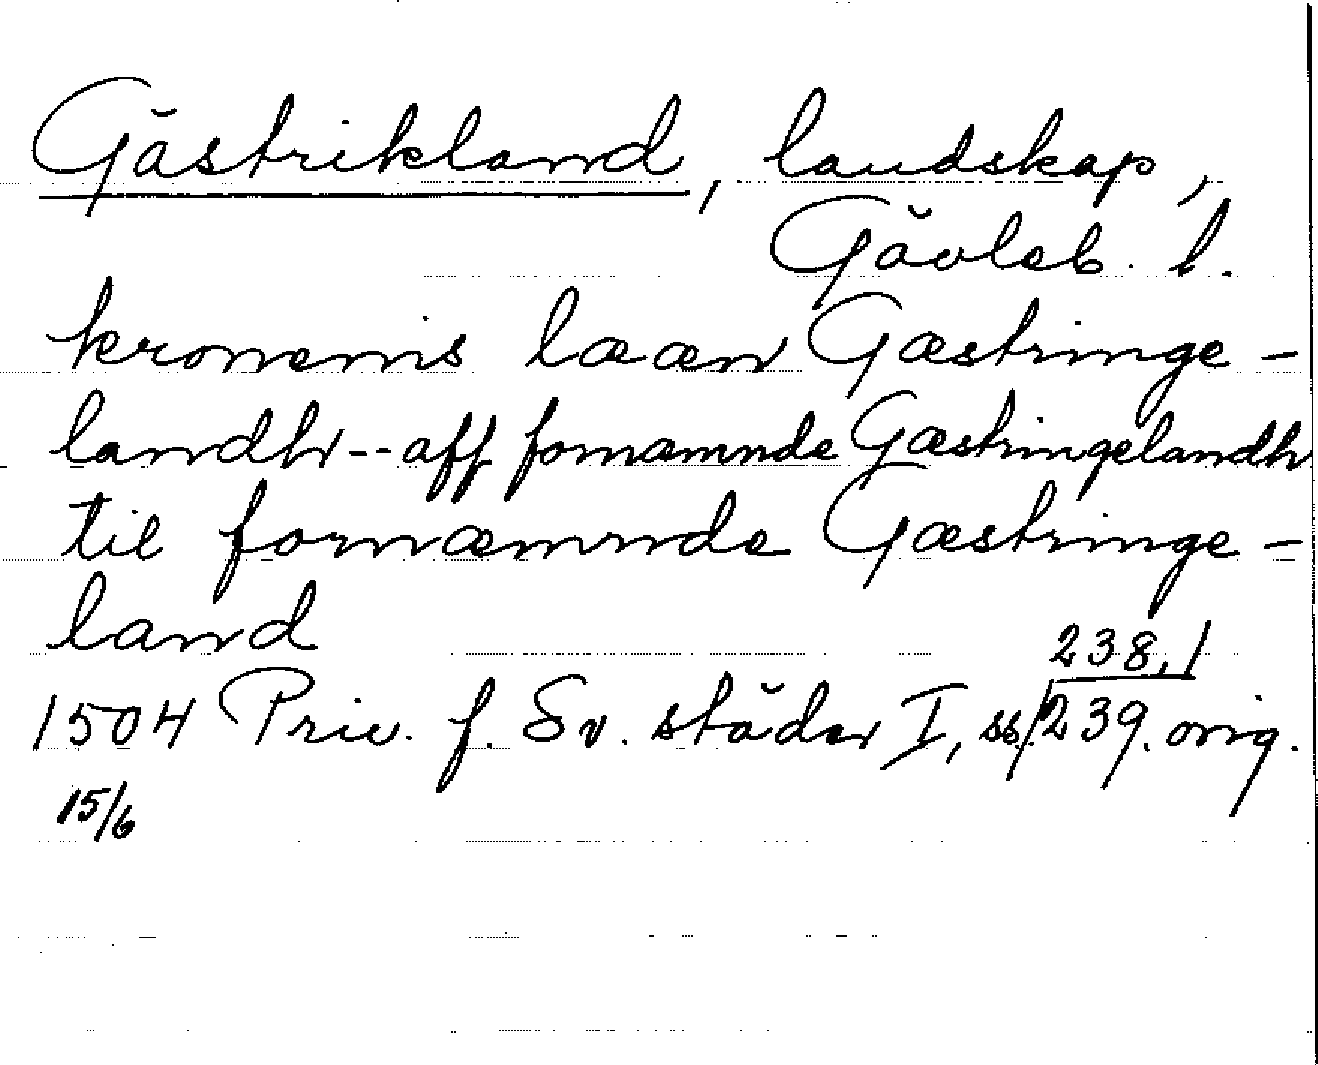 Gästrikland, landskap,
Gävleb. l.
kronenis lææn Gæstringe-
landh--aff fornæmnde Gæstringelandh
til fornæmnde Gæstringe-
land
238, 1
1504 Priv. f. Sv. städer I, ss/239. orig.
15/6